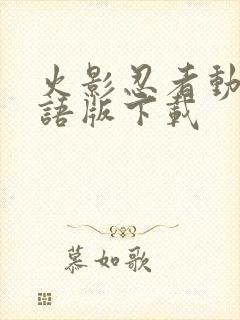 火影忍者動
語版下載
慕如歌